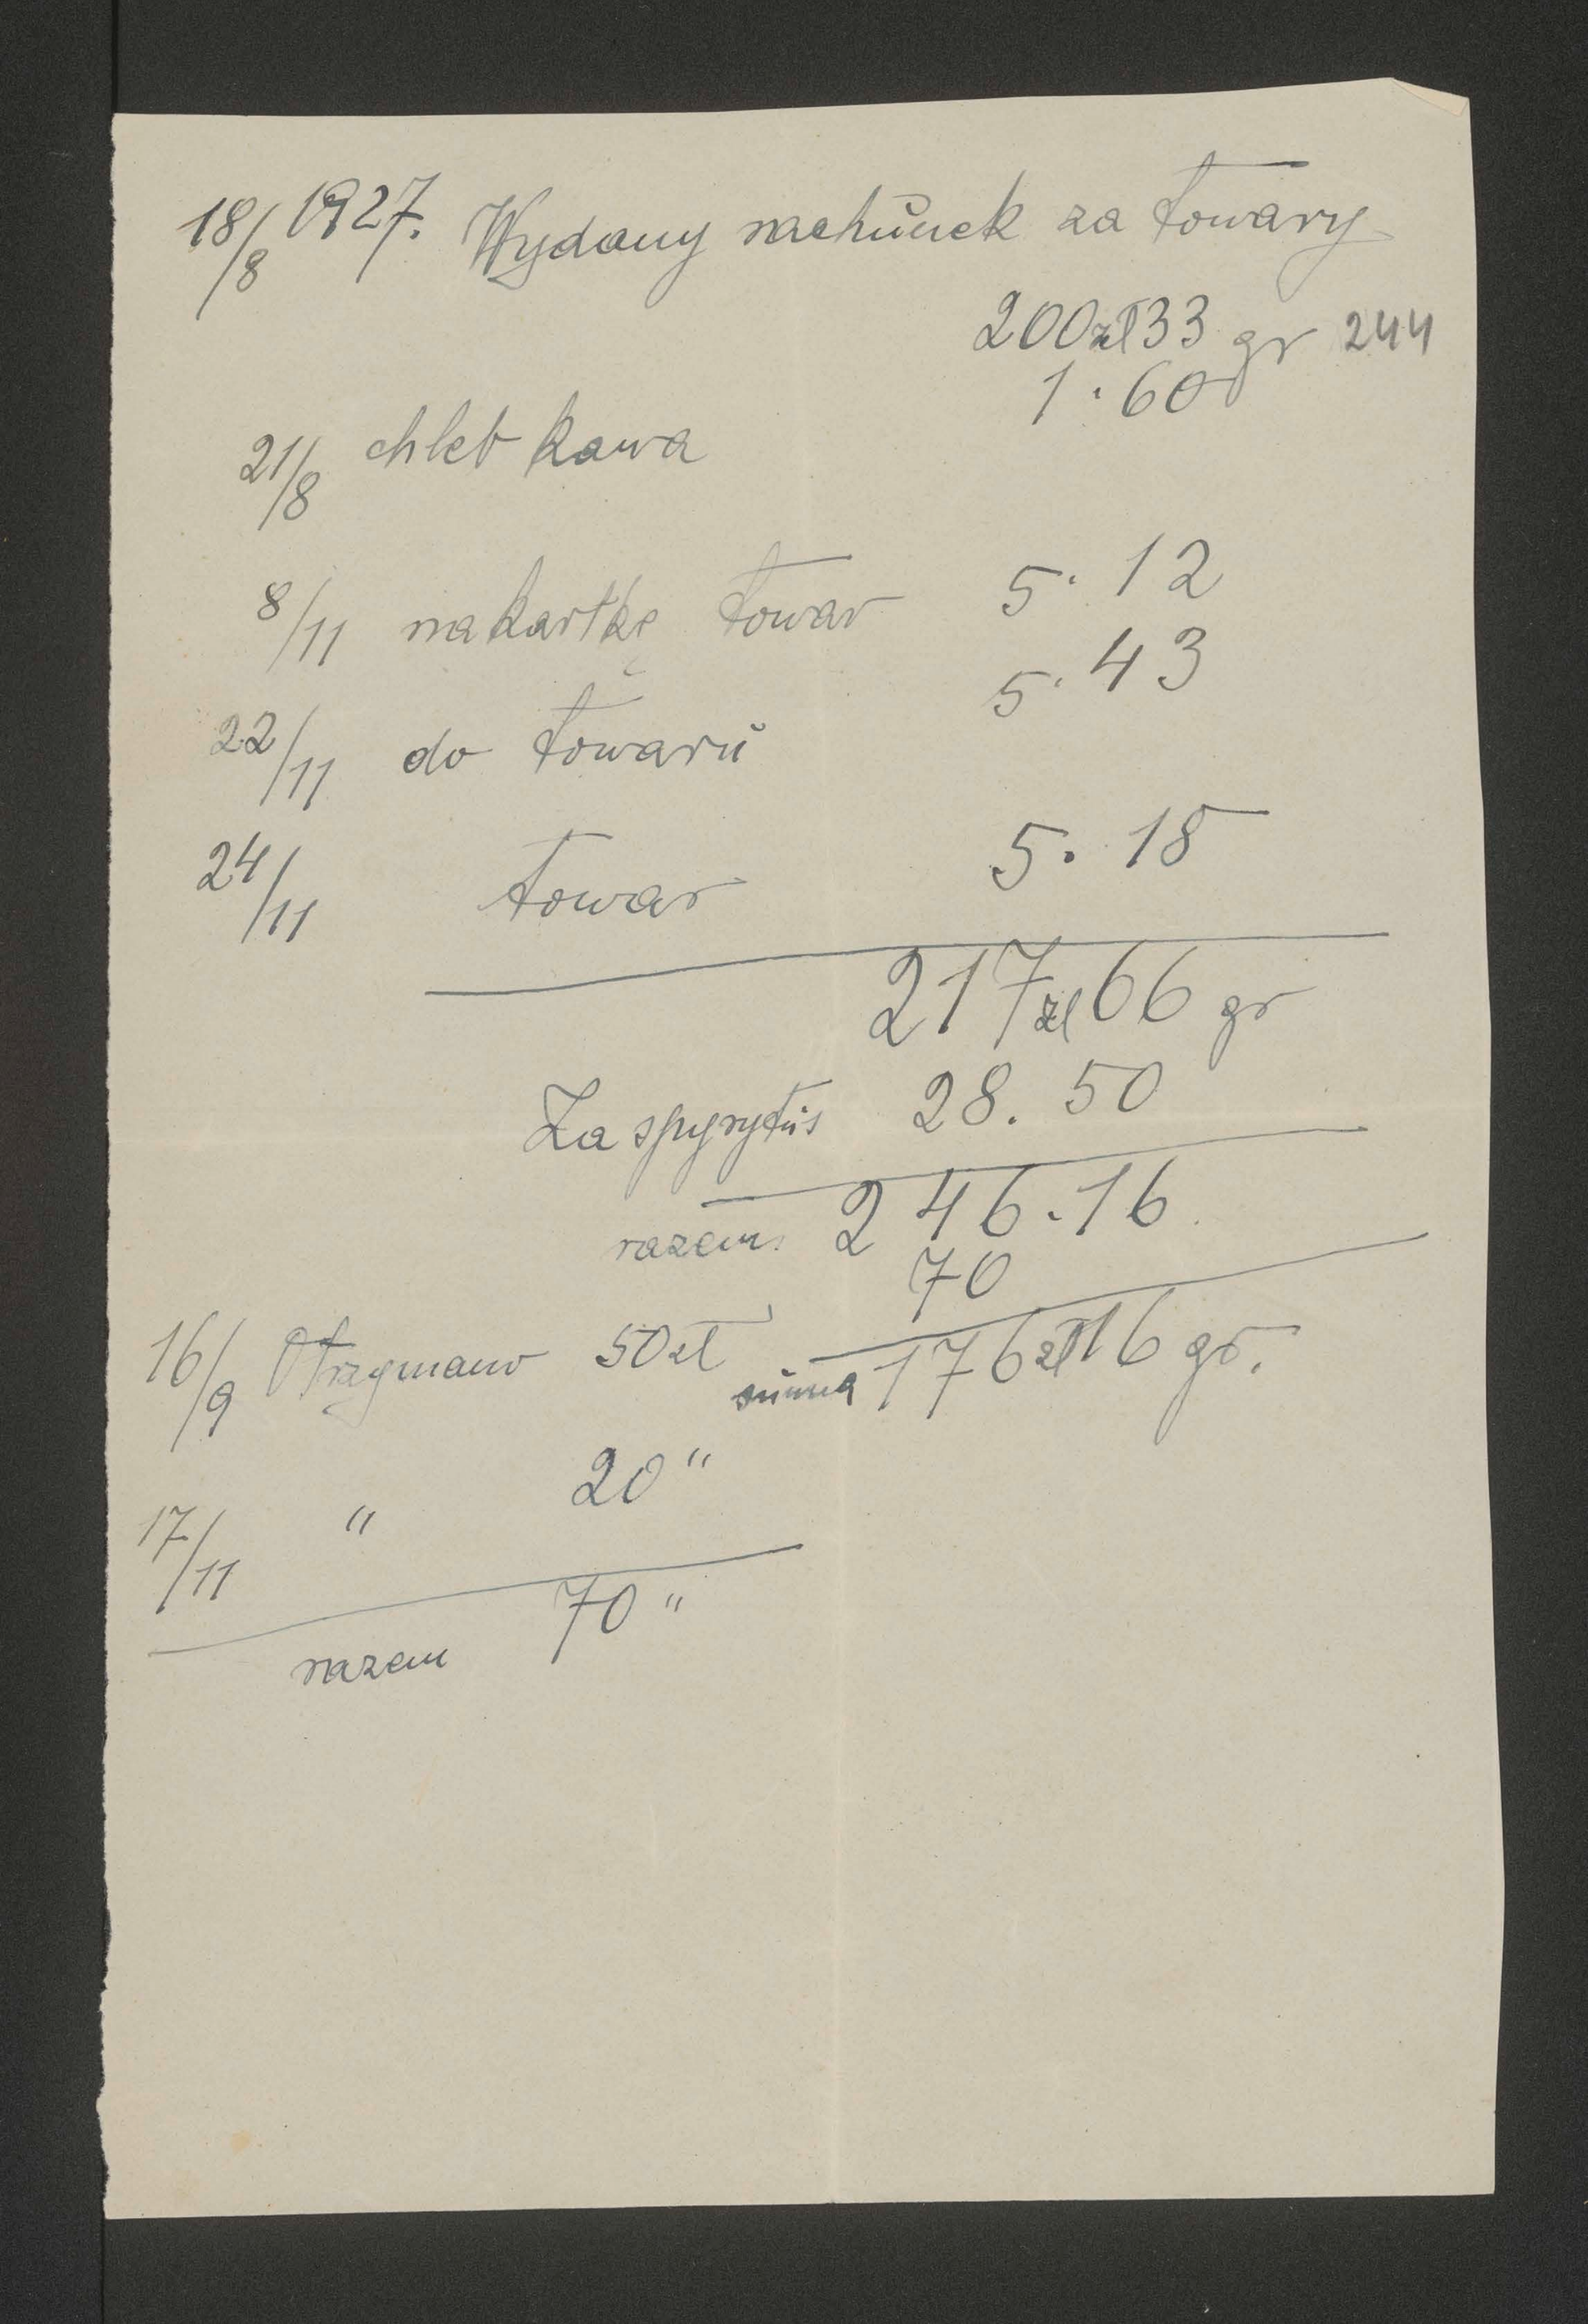 18/8 1927. Wydany rachunek za towary
200 zł 33 gr 244
1.60
21/8 chleb kawa
8/11 na kartkę towar 5.12
5.43
22/11 do towaru
24/11 towar 5.18
217 zł 66 gr
Za spyrytus 28.50
razem 246.16
70
16/9 Otrzymano 50 zł suma 176 zł 16 gr.
20 "
17/11 "
70 "
razem